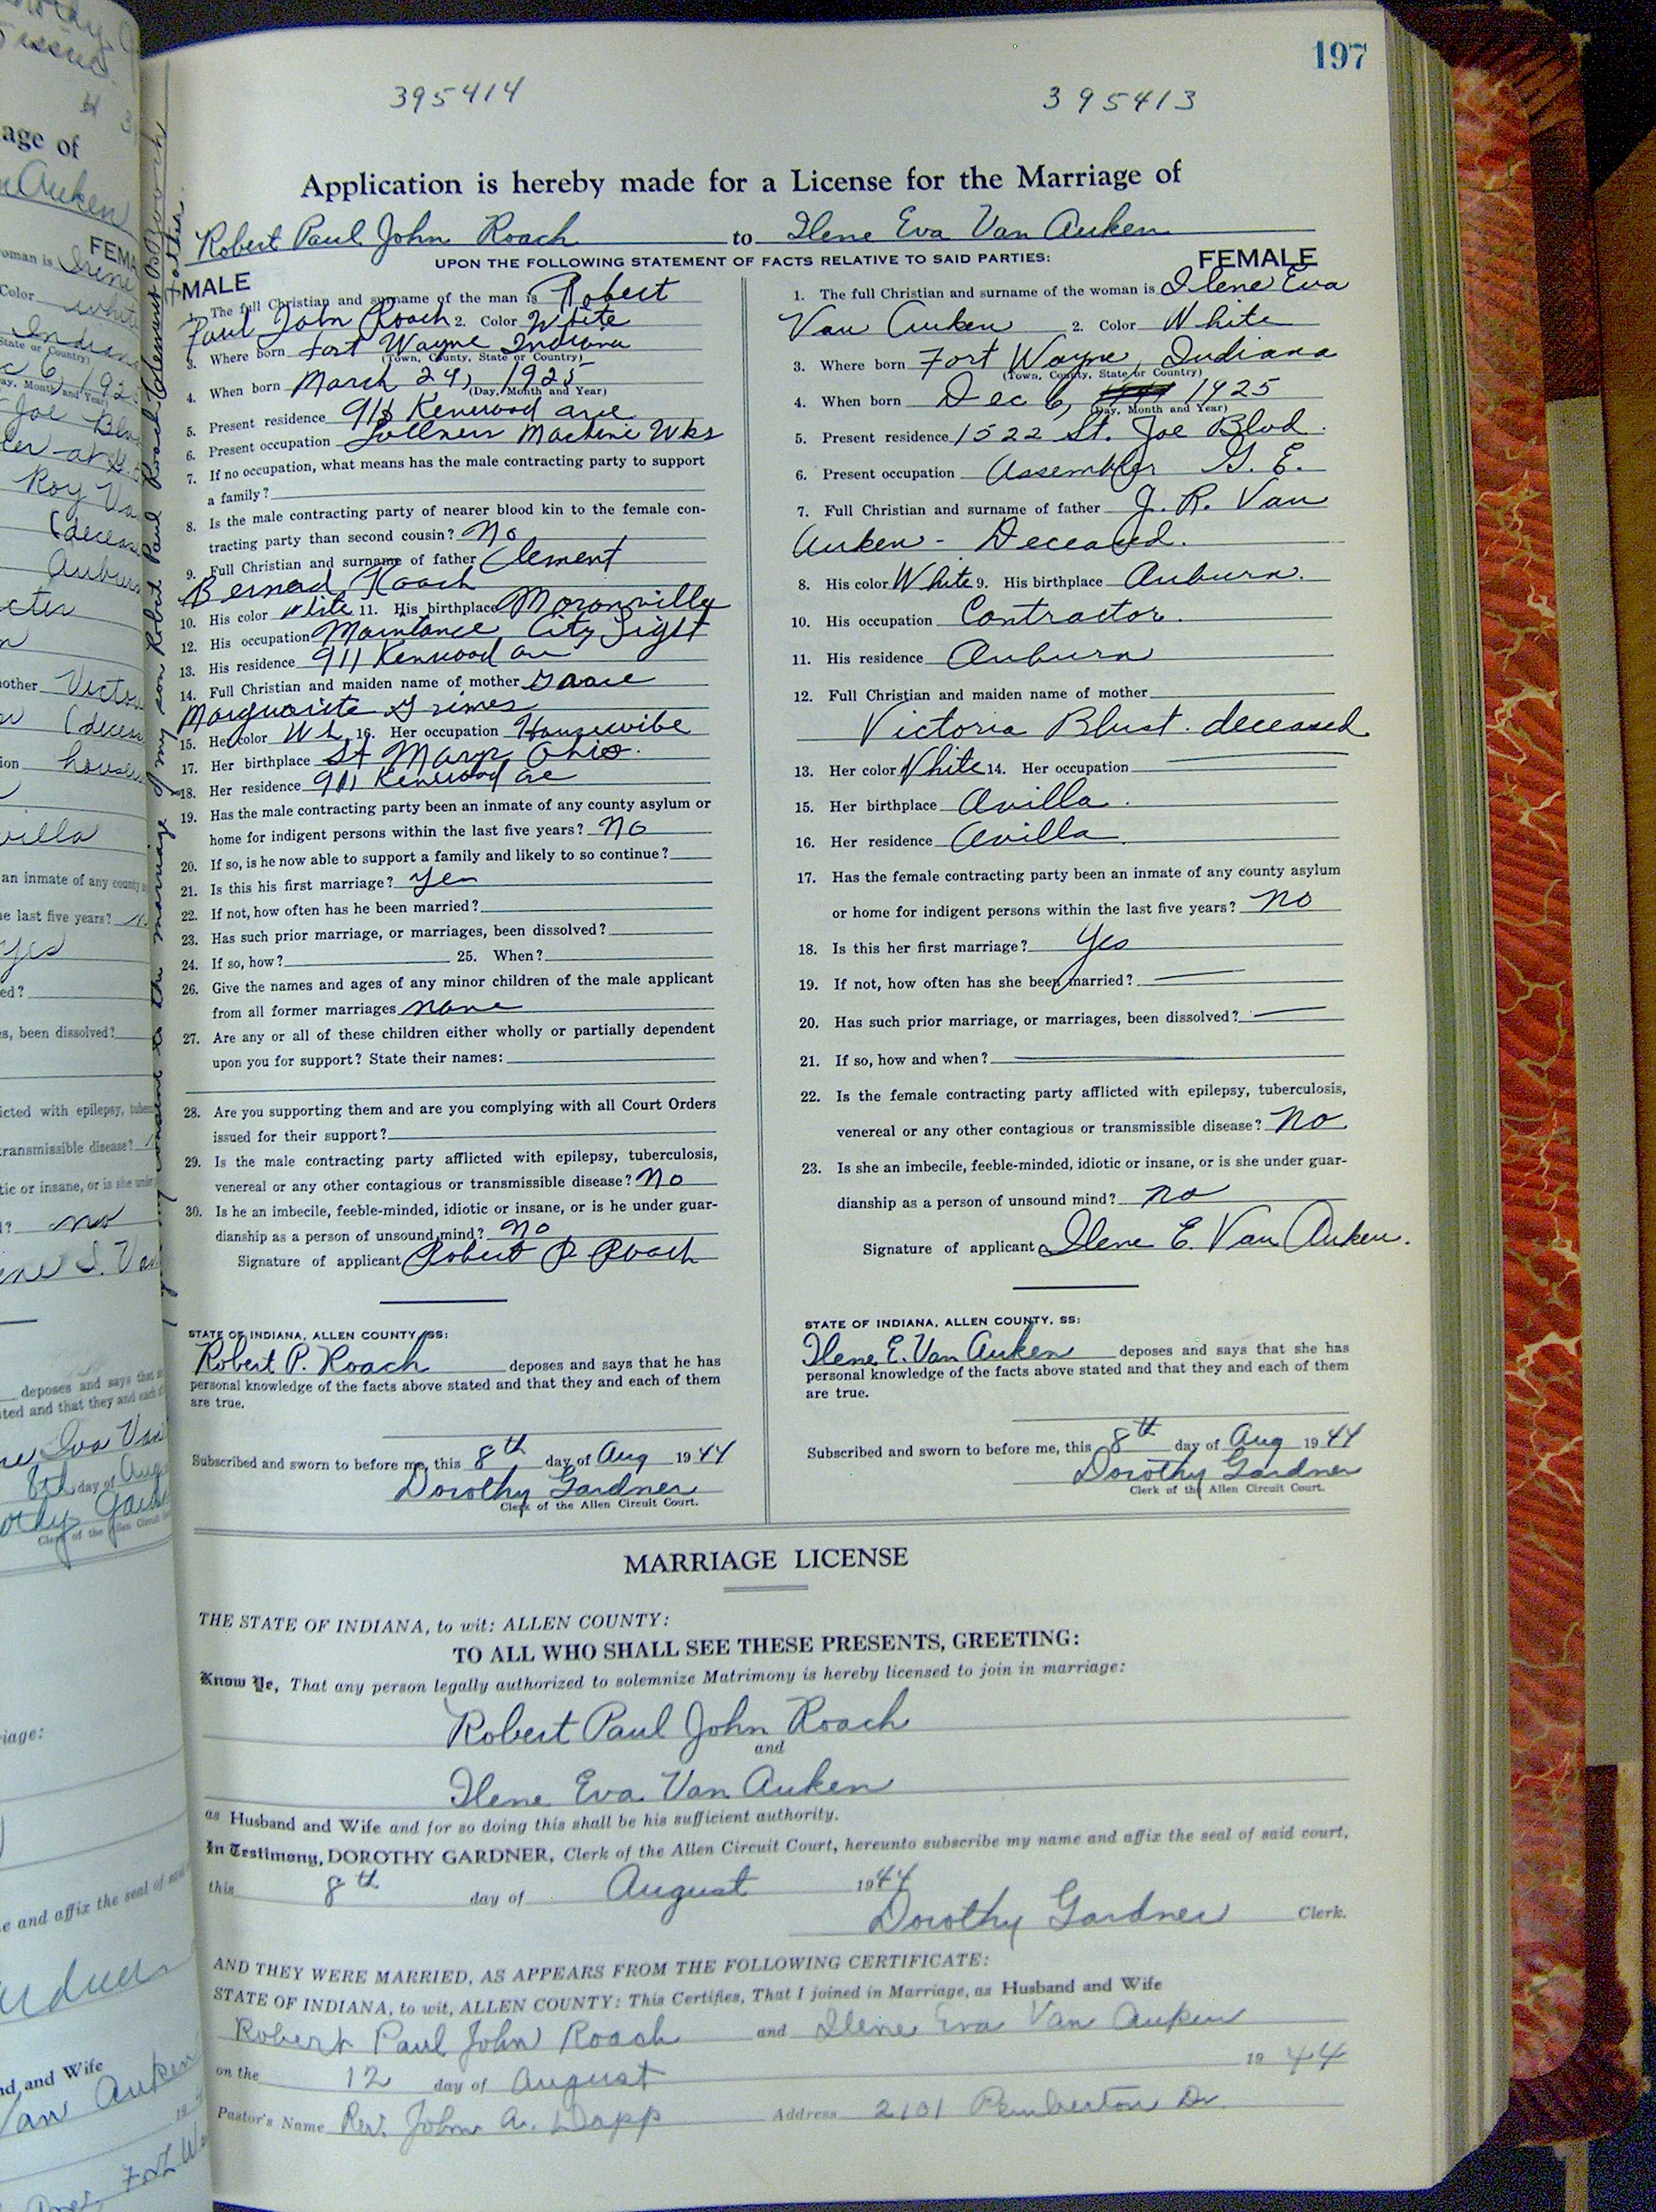 197
395414
395413
Application is hereby made for a License for the Marriage of
Robert Paul John Roach to Ilene Eva Van Auken
UPON THE FOLLOWING STATEMENT OF FACTS RELATIVE TO SAID PARTIES:
MALE
1. The full Christian and surname of the man is Robert
Paul John Roach 2. Color White
3. Where born Fort Wayne Indiana
(Town, County, State or Country)
4. When born March 29, 1925
(Day, Month and Year)
5. Present residence 911 Kenwood ave
6. Present occupation Machine Wks
7. If no occupation, what means has the male contracting party to support
a family?
8. Is the male contracting party of nearer blood kin to the female con-
tracting party than second cousin? No
9. Full Christian and surname of father Clement
Bernard Roach
10. His color white 11. His birthplace
12. His occupation Maintance City Light
13. His residence 911 Kenwood ave
14. Full Christian and maiden name of mother Grace
Marguerite Grimes
15. Her color Wh 16. Her occupation Housewife
17. Her birthplace St Marys Ohio.
18. Her residence 911 Kenwood ave
19. Has the male contracting party been an inmate of any county asylum or
home for indigent persons within the last five years? No
20. If so, is he now able to support a family and likely to so continue?
21. Is this his first marriage? Yes
22. If not, how often has he been married?
23. Has such prior marriage, or marriages, been dissolved?
24. If so, how? 25. When?
26. Give the names and ages of any minor children of the male applicant
from all former marriages none
27. Are any or all of these children either wholly or partially dependent
upon you for support? State their names:
28. Are you supporting them and are you complying with all Court Orders
issued for their support?
29. Is the male contracting party afflicted with epilepsy, tuberculosis,
venereal or any other contagious or transmissible disease? No
30. Is he an imbecile, feeble-minded, idiotic or insane, or is he under guar-
dianship as a person of unsound mind? No
Signature of applicant Robert P Roach
STATE OF INDIANA, ALLEN COUNTY, SS:
Robert P. Roach deposes and says that he has
personal knowledge of the facts above stated and that they and each of them
are true.
Subscribed and sworn to before me, this 8th day of Aug 1944
Dorothy Gardner
Clerk of the Allen Circuit Court.
FEMALE
1. The full Christian and surname of the woman is Ilene Eva
Van Auken 2. Color White
3. Where born Fort Wayne Indiana
(Town, County, State or Country)
4. When born Dec 6, 1925
(Day, Month and Year)
5. Present residence 1522 St. Joe Blvd.
6. Present occupation Assembler G. E.
7. Full Christian and surname of father J. R. Van
Auken - Deceased.
8. His color White 9. His birthplace Auburn.
10. His occupation Contractor.
11. His residence Auburn
12. Full Christian and maiden name of mother
Victoria Blust. deceased
13. Her color White 14. Her occupation
15. Her birthplace Avilla.
16. Her residence Avilla.
17. Has the female contracting party been an inmate of any county asylum
or home for indigent persons within the last five years? No
18. Is this her first marriage? Yes
19. If not, how often has she been married?
20. Has such prior marriage, or marriages, been dissolved?
21. If so, how and when?
22. Is the female contracting party afflicted with epilepsy, tuberculosis,
venereal or any other contagious or transmissible disease? No
23. Is she an imbecile, feeble-minded, idiotic or insane, or is she under guar-
dianship as a person of unsound mind? no
Signature of applicant Ilene E. Van Auken.
STATE OF INDIANA, ALLEN COUNTY, SS:
Ilene E. Van Auken deposes and says that she has
personal knowledge of the facts above stated and that they and each of them
are true.
Subscribed and sworn to before me, this 8th day of Aug 1944
Dorothy Gardner
Clerk of the Allen Circuit Court.
MARRIAGE LICENSE
THE STATE OF INDIANA, to wit: ALLEN COUNTY:
TO ALL WHO SHALL SEE THESE PRESENTS, GREETING:
Know Ye, That any person legally authorized to solemnize Matrimony is hereby licensed to join in marriage:
Robert Paul John Roach
and
Ilene Eva Van Auken
as Husband and Wife and for so doing this shall be his sufficient authority.
In Testimony, DOROTHY GARDNER, Clerk of the Allen Circuit Court, hereunto subscribe my name and affix the seal of said court,
this 8th day of August 1944
Dorothy Gardner Clerk.
AND THEY WERE MARRIED, AS APPEARS FROM THE FOLLOWING CERTIFICATE:
STATE OF INDIANA, to wit, ALLEN COUNTY: This Certifies, That I joined in Marriage, as Husband and Wife
Robert Paul John Roach and Ilene Eva Van Auken
on the 12 day of August 19 44
Pastor's Name Rev. John A. Dapp Address 2101 Pemberton Dr.
I consent to the marriage of my son Robert Paul Roach Clement B Roach
father